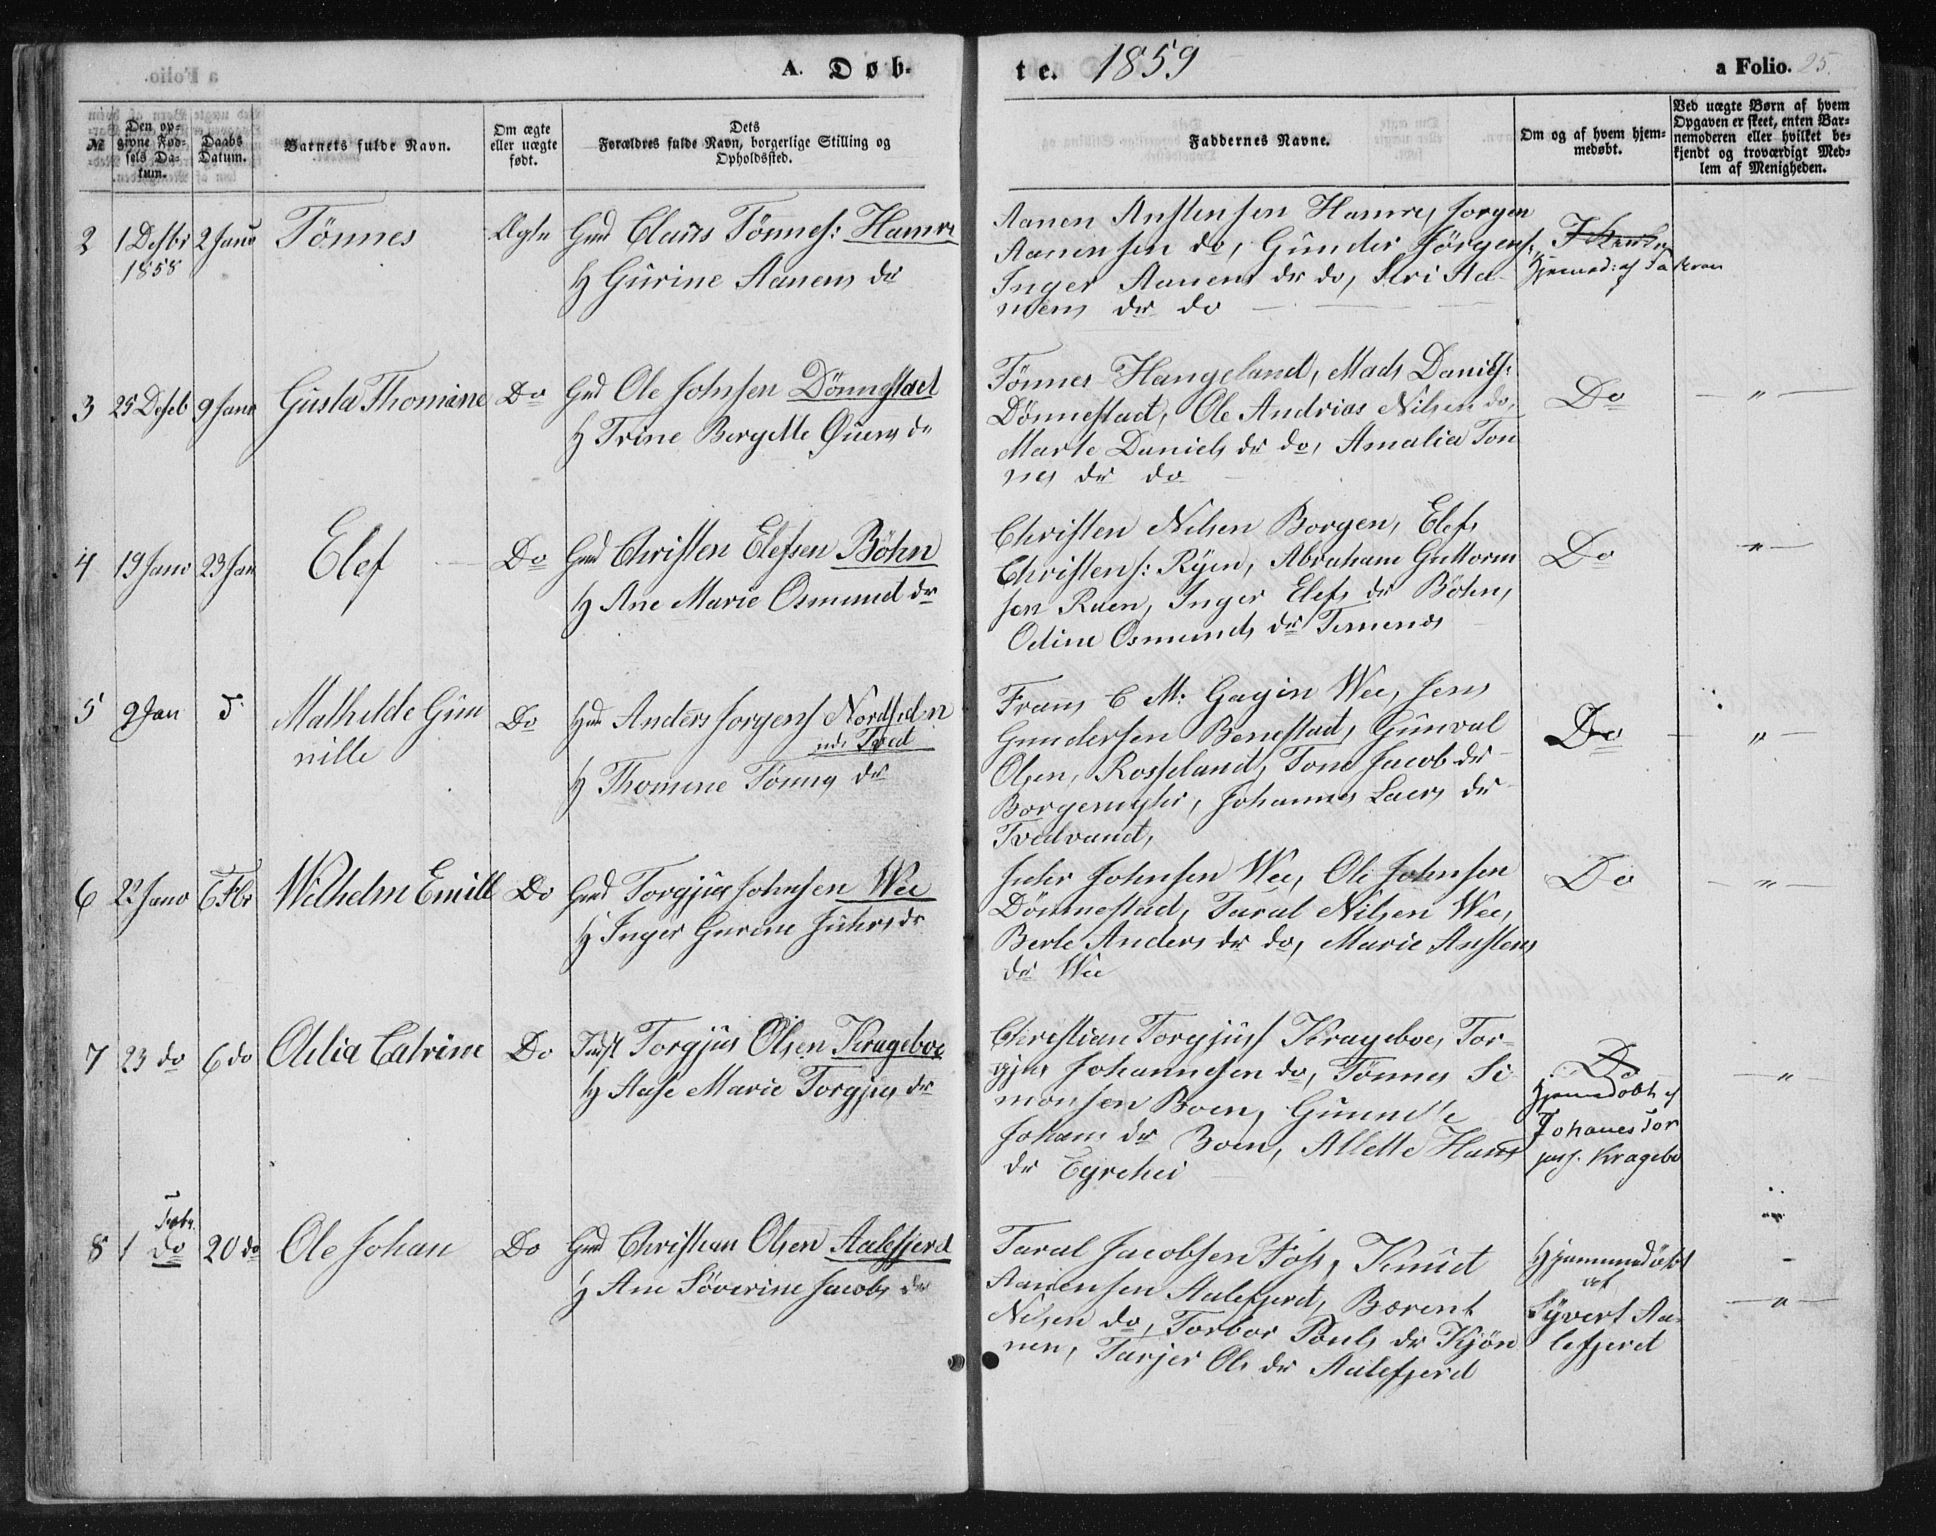 A. Døb-
te. 1859
a Folio. 25.
№
Den op-
givne Fød-
sels Da-
tum.
Daabs
Datum.
Barnets fulde Navn.
Om ægte
eller uægte
født.
Dets
Forældres fulde Navn, borgerlige Stilling og
Opholdssted.
Faddernes Navne.
Om og af hvem hjem-
medøbt.
Ved uægte Børn af hvem
Opgaven er skeet, enten Bar-
nemoderen eller hvilket be-
kjendt og troværdigt Med-
lem af Menigheden.
2 1 Desbr 2 Janu Tönnes Ægte Gmd Claus Tönnes: Hamre
1858
H Gurine Aanens dr
Aanen Anstensen Hamre, Jorgen
Aanensen do, Gunder Jörgens:,
Inger Aanens dr do, Siri Aa-
nens dr do
Hjemed: af
3 25 Deseb 9 Janu Gusta Thomine Do Gmd Ole Johnsen Dönnestad
H Trine Bergette Öuens dr
Tönnes Hangeland, Mads Daniels:
Dönnestad, Ole Andrias Nilsen do,
Marte Daniels dr do, Amalia Ton
nes dr do
Do
4 19 Janu 23 Jan Elef Do Gmd Christen Elefsen Böhn
H Ane Marie Osmund dr
Christen Nilsen Borgen, Elefs
Christens: Ryen, Abraham Guttorm
sen Ruen, Inger Elefs dr Böhn,
Odine Osmunds dr Ternenes
Do
5 9 Jan Mathilde Gun Do Hmd Anders Jorgens Nordsiden
nille
nd. Tved
H Thomine Tönnes dr
Frans C M: Gagin Wee, Jens
Gundersen Benestad, Gunval
Olsen, Rosseland, Tone Jacob dr
Borgemyhr, Johanne Laers dr
Tvedvand,
Do
6 22 Janu 6 Fbr Wilhelm Emill Do Gmd Torgjus Johnsen Wee
H Inger Gurine Juhrs dr
Juhr Johnsen Wee, Ole Johnsen
Dönnestad, Taral Nilsen Wee,
Berte Anders dr do, Marie Anstens
dr Wee
Do
7 23 do 6 do Odelia Catrine Do Torgjus Olsen Krageboe
H Aase Marie Torgjus dr
Christian Torgjus Krageboe, Tor-
gjus Johannesen do, Tönnes Si
monsen Boen, Gunnelle
Johans dr Boen, Allette Hans
dr Eyrehei
Do
Hjemedöbt af
Johanes Tor
jus. Kragebo
Febr.
8 1 do 20 do Ole Johan Do Gmd Christian Olsen Aalefjerd
H Ane Söverine Jacobs dr
Taral Jacobsen Fos, Knud
Aanensen Aalefjerd, Bærent
Nilsen do, Torbor Pouls dr Kjön
nen, Tarjer Ols dr Aalefjerd
Hjemmedöbt
af
Syvert Aa-
lefjerd